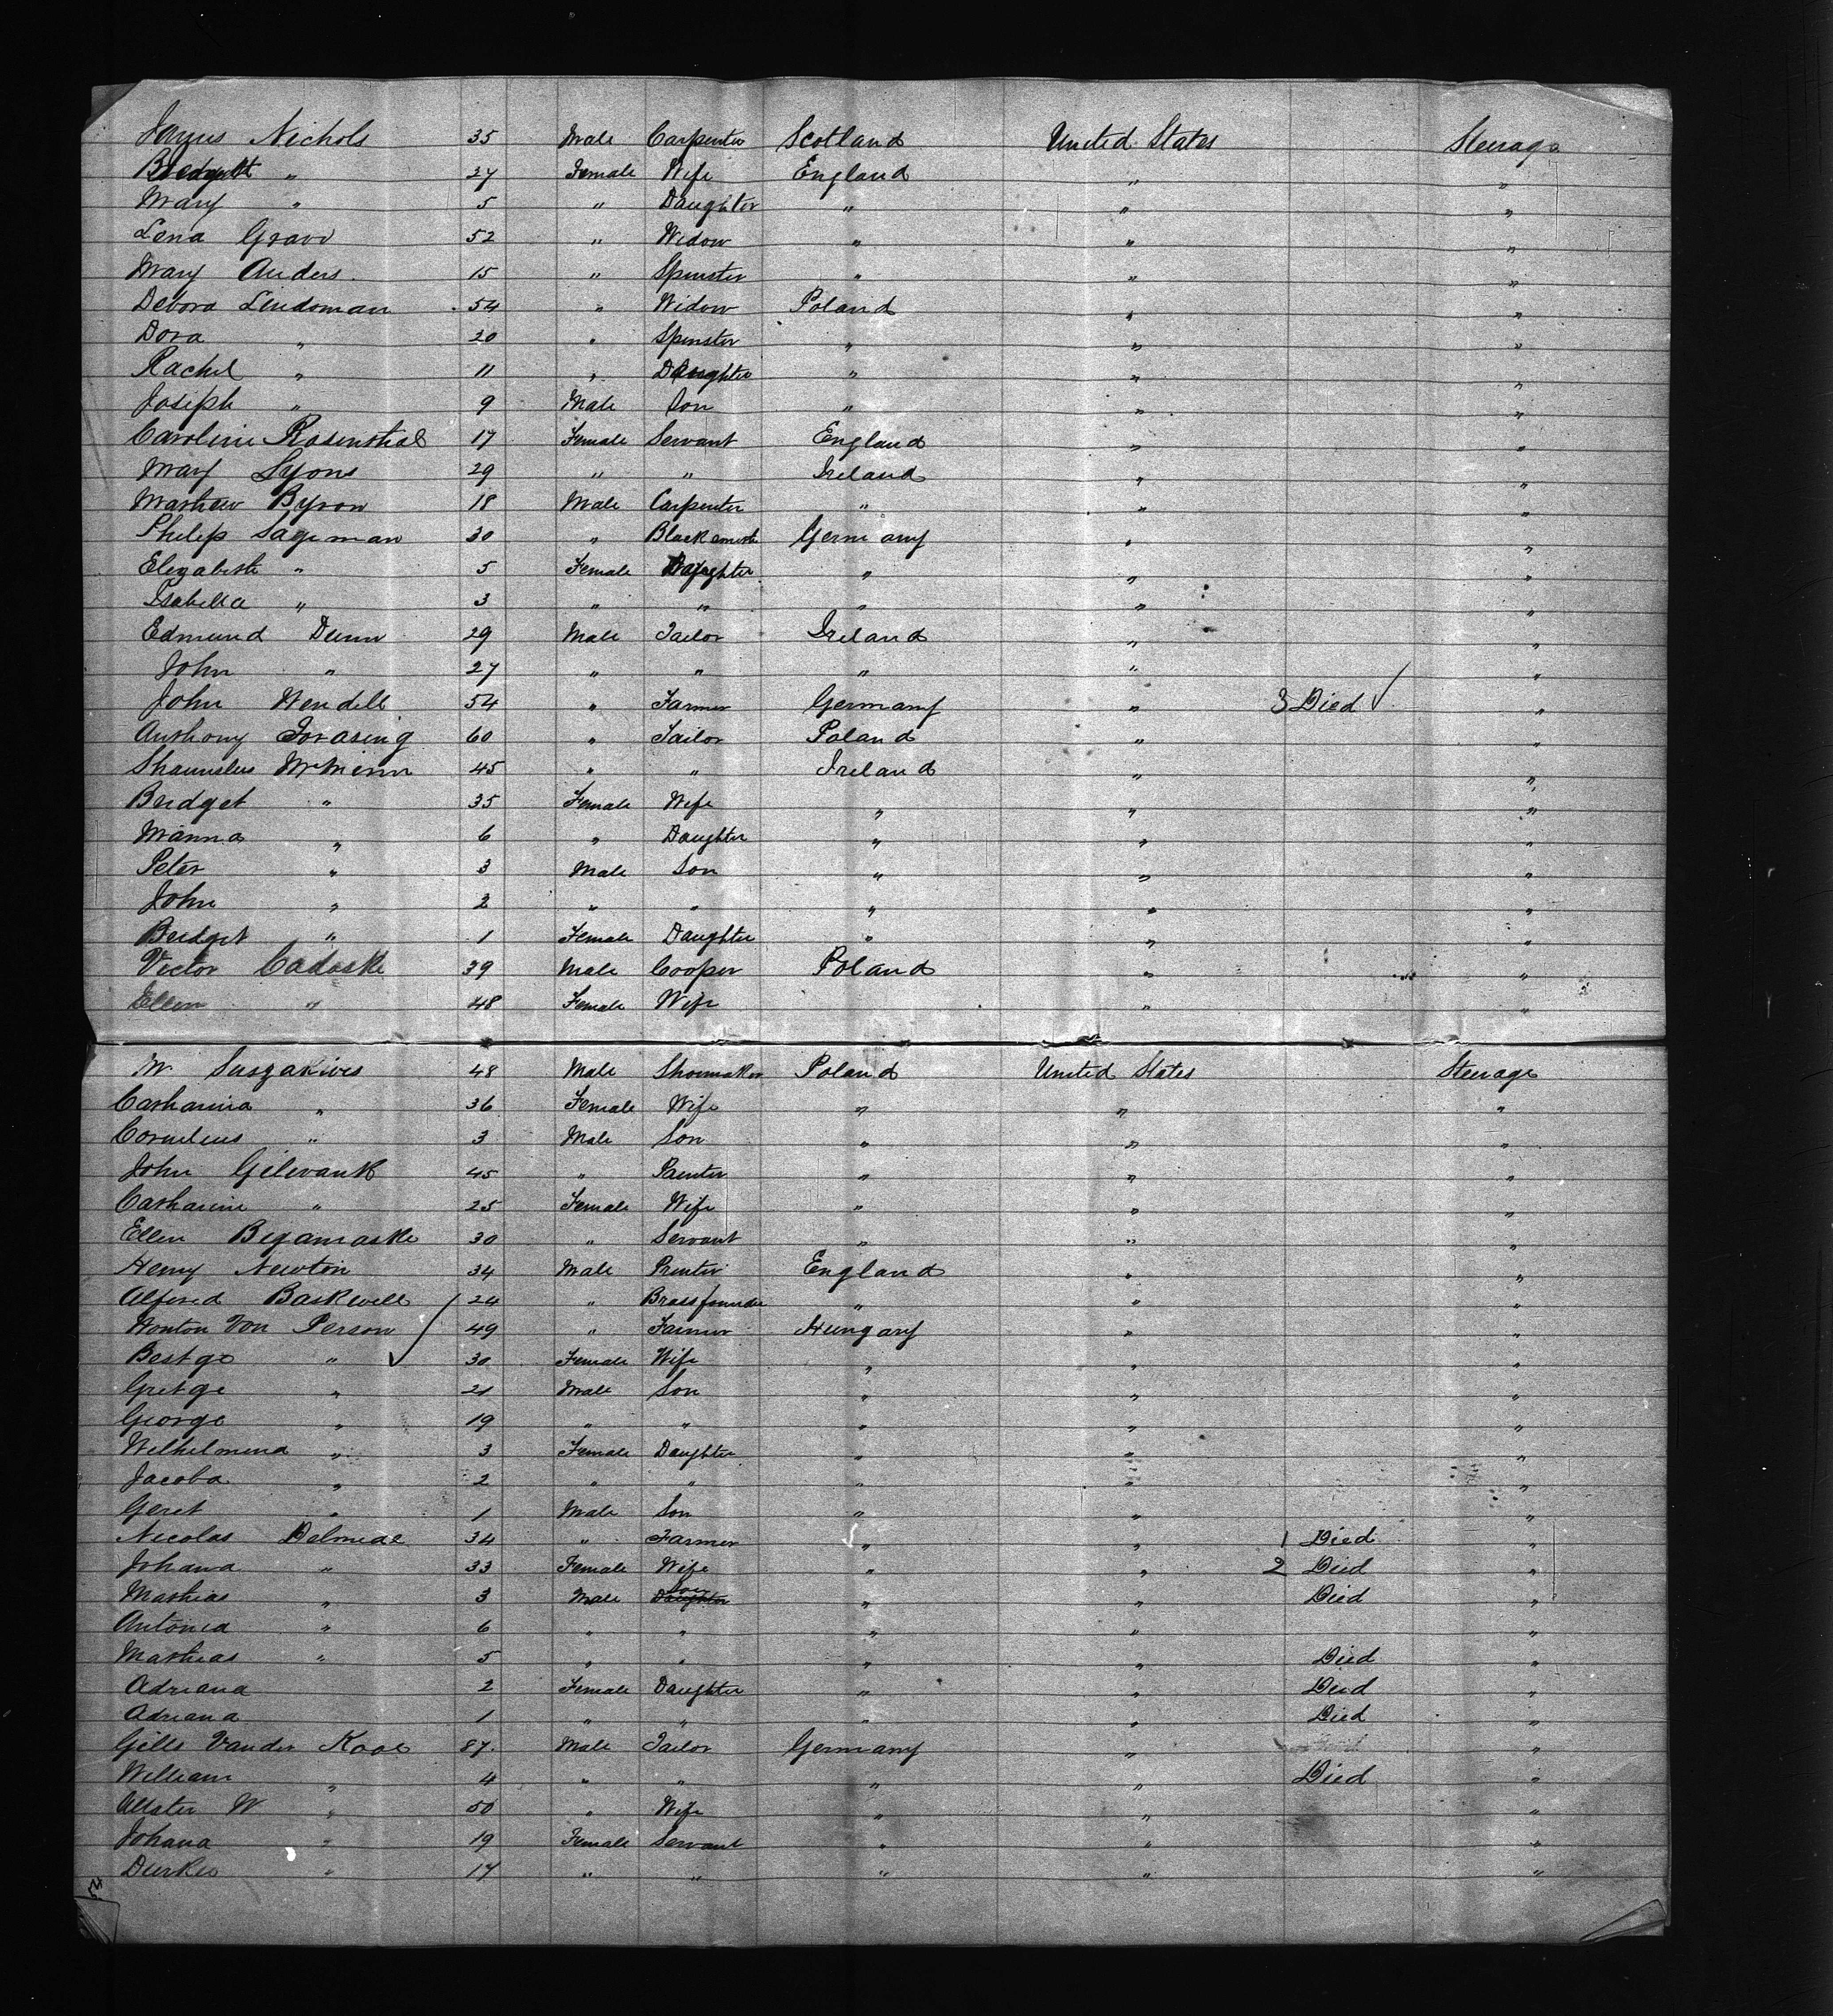 Nichols 35 Male Carpenter Scotland United States Steerage
" 27 Female Wife England " "
Mary " 5 " Daughter " " "
Lena 52 " Widow " " "
Mary Anders 15 " Spinster " " "
Debora Lindoman 54 " Widow Poland " "
Dora " 20 " Spinster " " "
Rachel " 11 " Daughter " " "
Joseph " 9 Male Son " " "
Caroline Rosenthal 17 Female Servant England " "
Mary Lyons 29 " " Ireland " "
Mathew Byron 18 Male Carpenter " " "
Philip Sagiman 30 " Blacksmith Germany " "
Elizabeth " 5 Female Daughter " " "
Isabella " 3 " " " " "
Edmund Dunn 29 Male Tailor Ireland " "
John " 27 " " " " "
John Wendell 54 " Farmer Germany " 3 Died ✓ "
Anthony 60 " Tailor Poland " "
45 " " Ireland " "
Bridget " 35 Female Wife " " "
" 6 " Daughter " " "
Peter " 3 Male Son " " "
John " 2 " " " " "
Bridget " 1 Female Daughter " " "
Victor Cadaske 39 Male Cooper Poland " "
Ellen " 48 Female Wife " "
M 48 Male Shoemaker Poland United States Steerage
Catharina " 36 Female Wife " " "
Cornelius " 3 Male Son " " "
John Gilevank 45 " Painter " " "
Catharine " 25 Female Wife " " "
Ellen Begamaske 30 " Servant " " "
Henry Newton 34 Male Printer England " "
Alfred Baskwell 24 " Brassfounder " " "
Von Person ✓ 49 " Farmer Hungary " "
" 30 Female Wife " " "
Gretge " 21 Male Son " " "
George " 19 " " " " "
Wilhelmina " 3 Female Daughter " " "
Jacoba " 2 " " " " "
Geret " 1 Male Son " " "
Nicolas 34 " Farmer " " 1 Died "
Johana " 33 Female Wife " " 2 Died "
Mathias " 3 Male Son Daughter " " Died "
Antonia " 6 " " " " "
Mathias " 5 " " " " Died "
Adriana 2 Female Daughter " " Died "
Adriana 1 " " " " Died "
Gille Vander Kool 87 Male Tailor Germany " "
William " 4 " " " " Died "
W " 50 " Wife " " "
Johana " 19 Female Servant " " "
" 17 " " " " "